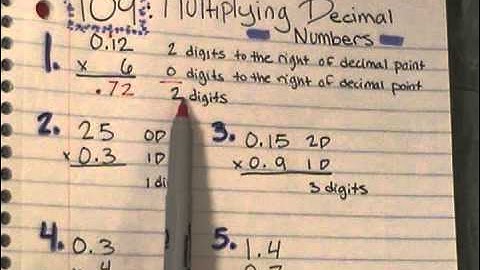 109 Multiplying Decimal
Numbers
1. 0.12 2 digits to the right of decimal point
x 6 0 digits to the right of decimal point
.72 2 digits
2. 25 0D 3. 0.15 2D
x 0.3 1D x 0.9 1D
1 3 digits
4. 0.3 5. 1.4